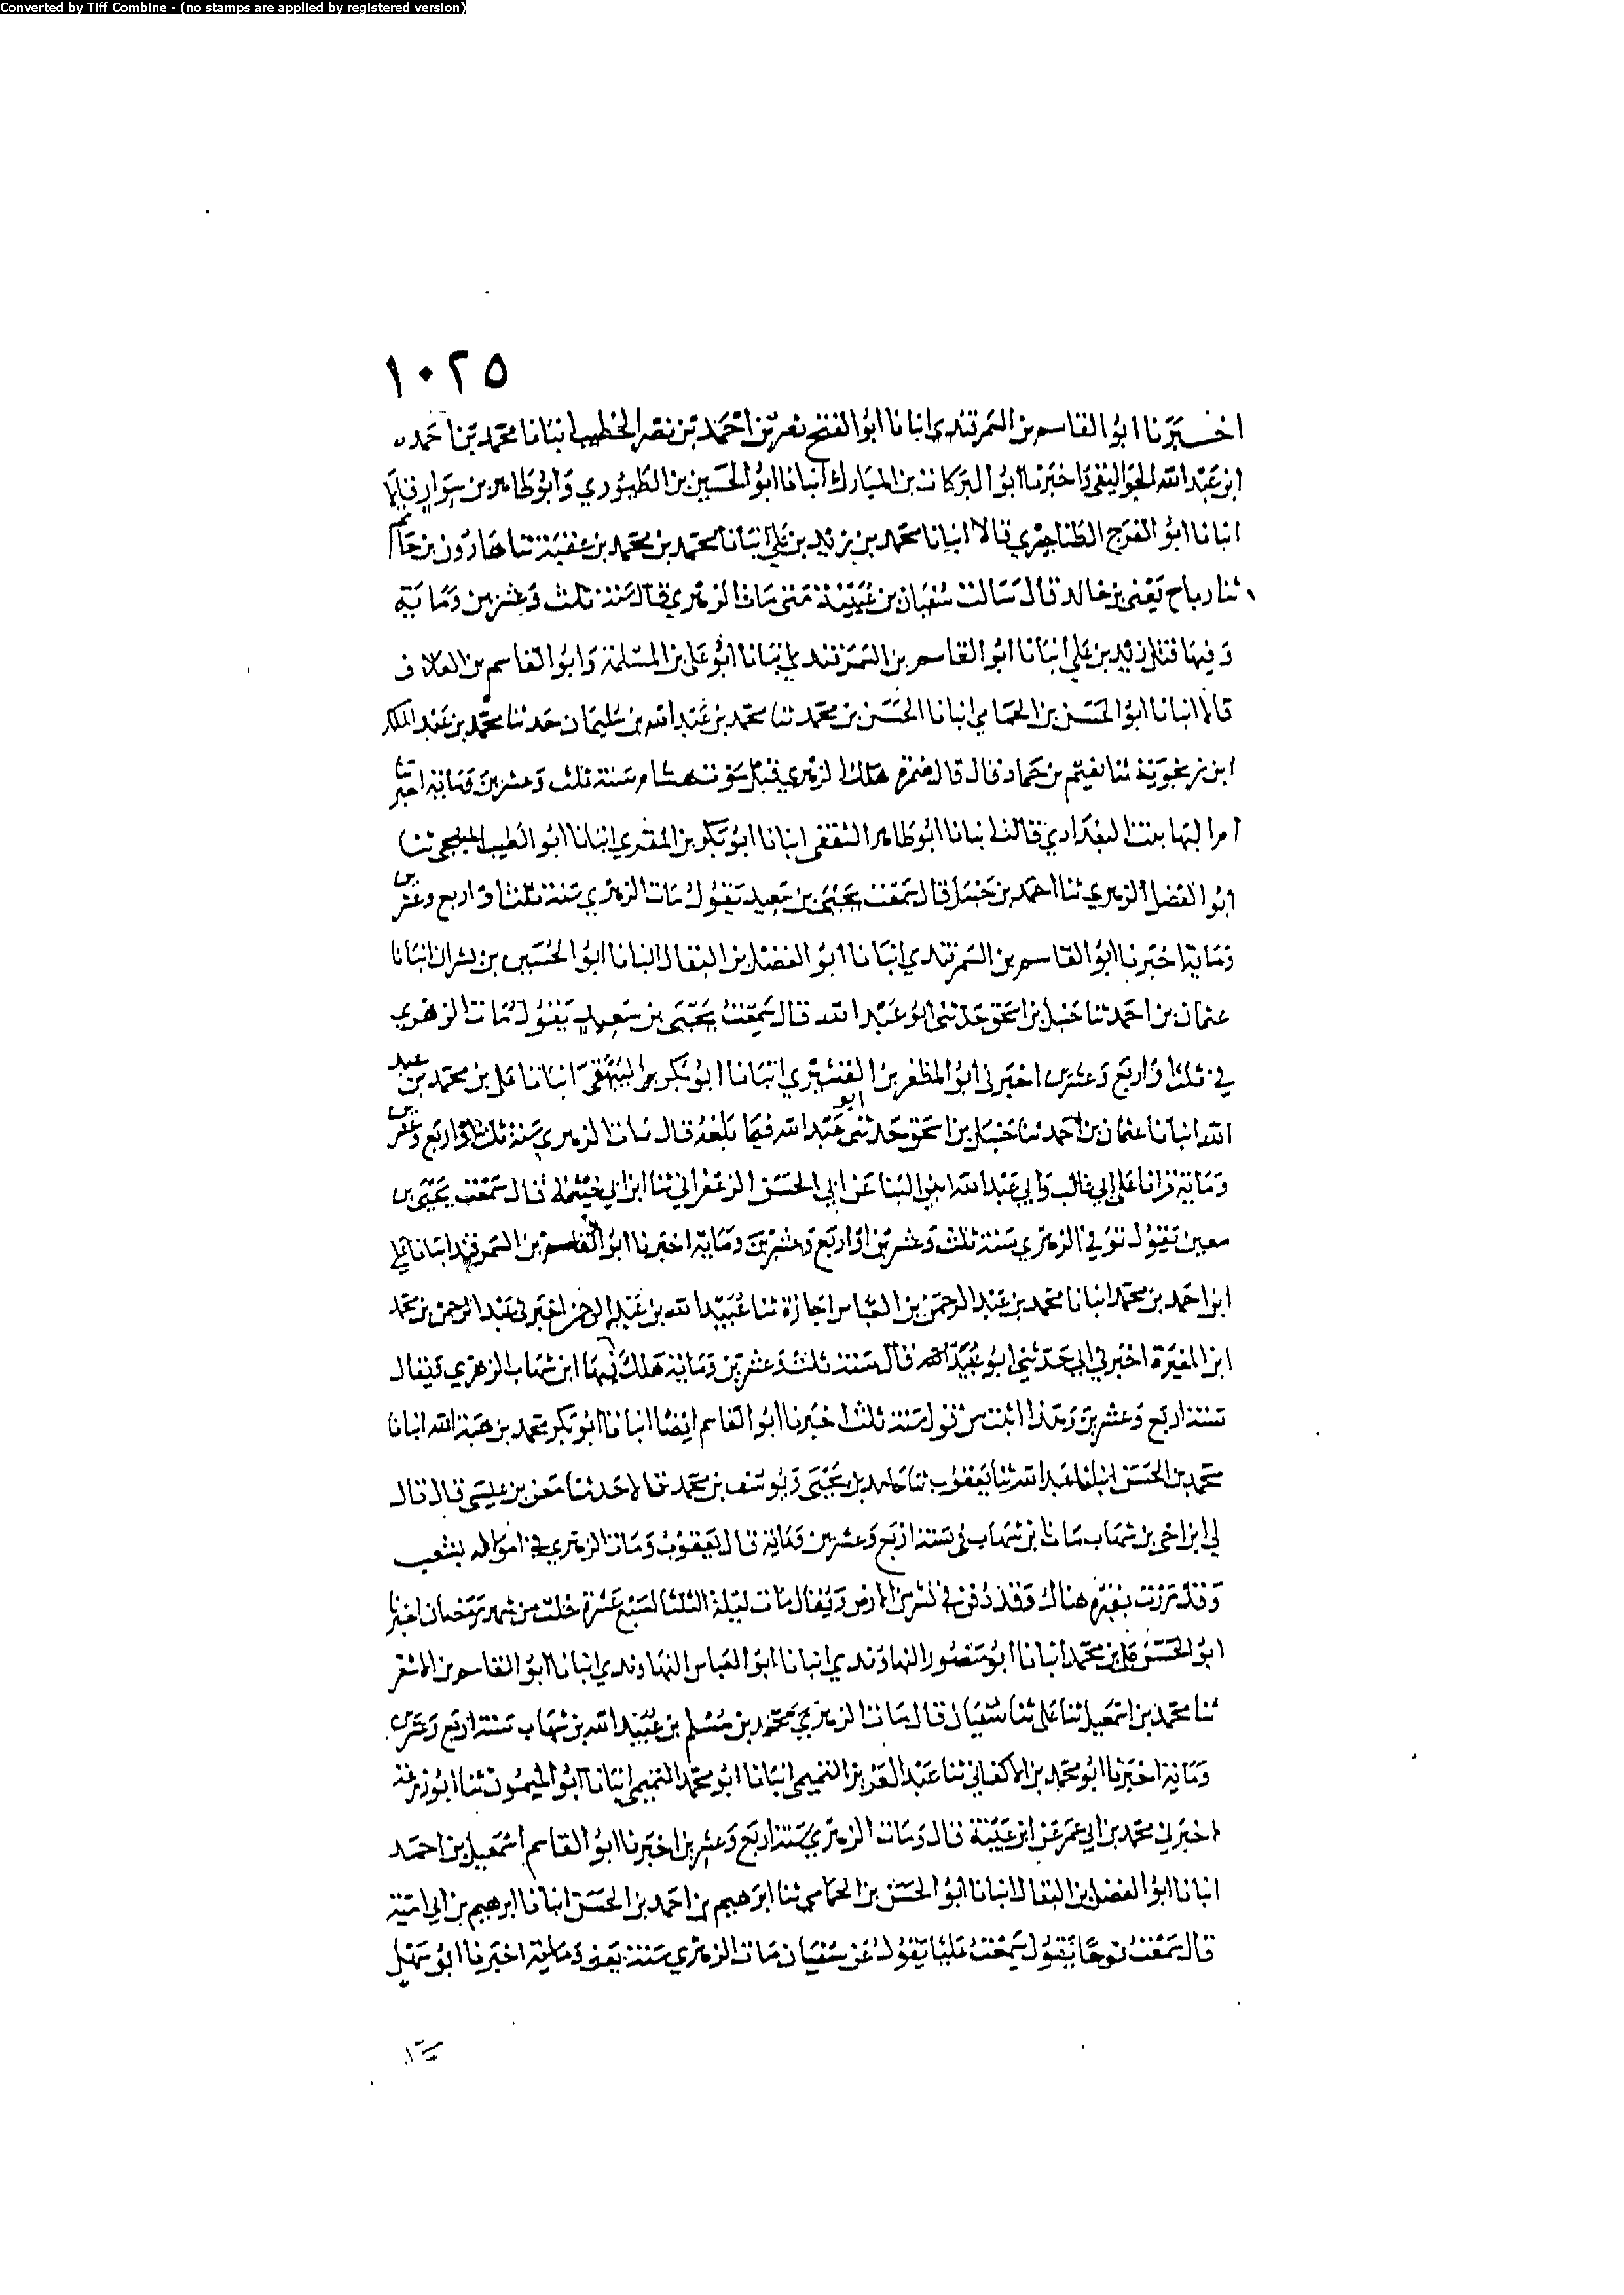 Converted by Tiff Combine - (no stamps are applied by registered version)
١٠٢٥
اخبرنا ابو القاسم بن السمرقندي انبانا ابو الفتح نصر بن احمد بن نصر الخطيب انبانا محمد بن احمد
ابن عبد الله الجواليقي واخبرنا ابو البركات بن المبارك انبانا ابو الحسين بن الطيوري وابو طاهر بن سوار قالا
انبانا ابو الفرج الطناجيري قالا انبانا محمد بن زيد بن علي انبانا محمد بن محمد بن عقبة ثنا هارون بن حاتم
ثنا رباح يعني بن خالد قال سالت سفيان بن عيينة متى مات الزهري قال سنة ثلث وعشرين وماية
وفيها قتل زيد بن علي انبانا ابو القاسم بن السمرقندي انبانا ابو علي بن المسلمة وابو القاسم بن العلاف
قالا انبانا ابو الحسن بن الحمامي انبانا الحسن بن محمد ثنا محمد بن عبد الله بن سليمان حدثنا محمد بن عبد الملك
ابن زنجوية ثنا نعيم بن حماد قال قال ضمرة هلك الزهري قبل موت هشام سنة ثلث وعشرين وماية اخبرتنا
ام البها بنت البغدادي قالت انبانا ابو طاهر الثقفي انبانا ابو بكر بن المقري انبانا ابو الطيب المنبجي ثنا
ابو الفضل الزهري ثنا احمد بن حنبل قال سمعت يحيى بن سعيد يقول مات الزهري سنة ثلث او اربع وعشرين
وماية اخبرنا ابو القاسم بن السمرقندي انبانا ابو الفضل بن البقال انبانا ابو الحسين بن بشران انبانا
عثمان بن احمد ثنا حنبل بن اسحق حدثني ابو عبد الله قال سمعت يحيى بن سعيد يقول مات الزهري
في ثلث او اربع وعشرين اخبرني ابو المظفر بن القشيري انبانا ابو بكر البيهقي انبانا علي بن محمد بن عبد
الله انبانا عثمان بن احمد ثنا حنبل بن اسحق حدثني ابو عبد الله فيما بلغه قال مات الزهري سنة ثلث او اربع وعشرين
وماية قرانا على ابي غالب وابي عبد الله ابني البنا عن ابي الحسن الزعفراني ثنا ابن ابي خيثمة قال سمعت يحيى بن
معين يقول توفي الزهري سنة ثلث وعشرين او اربع وعشرين وماية اخبرنا ابو القاسم بن السمرقندي انبانا علي
ابن احمد بن محمد انبانا محمد بن عبد الرحمن بن العباس اجازة ثنا عبيد الله بن عبد الرحمن اخبرني عبد الرحمن بن محمد
ابن المغيرة اخبرني ابي حدثني ابو عبيد الله قال سنة ثلث وعشرين وماية هلك فيها ابن شهاب الزهري ويقال
سنة اربع وعشرين وهذا اثبت من قول سنة ثلث اخبرنا ابو القاسم ايضا انبانا ابو بكر محمد بن هبة الله انبانا
محمد بن الحسين انبانا عبد الله ثنا يعقوب ثنا حامد بن يحيى ويوسف بن محمد قالا حدثنا معن بن عيسى قال قال
لي ابن اخي بن شهاب مات بن شهاب في سنة اربع وعشرين وماية قال يعقوب ومات الزهري في امواله بشغب
وقد مررت بقبره هناك وقد دفن في نشز من الارض ويقال مات ليلة الثلثا لسبع عشرة خلت من شهر رمضان اخبرنا
ابو الحسن علي بن محمد انبانا ابو منصور النهاوندي انبانا ابو العباس النهاوندي انبانا ابو القاسم بن الاشقر
ثنا محمد بن اسمعيل ثنا علي ثنا سفيان قال مات الزهري محمد بن مسلم بن عبيد الله بن شهاب سنة اربع وعشرين
وماية اخبرنا ابو محمد بن الاكفاني ثنا عبد العزيز التميمي انبانا ابو محمد التميمي انبانا ابو الميمون ثنا ابو زرعة
اخبرني محمد بن ابي عمر عن ابن عيينة قال ومات الزهري سنة اربع وعشرين اخبرنا ابو القاسم اسمعيل بن احمد
انبانا ابو الفضل بن البقال انبانا ابو الحسن بن الحمامي ثنا ابرهيم بن احمد بن الحسن انبانا ابرهيم بن ابي امية
قال سمعت نوحا يقول سمعت عليا يقول عن سفيان مات الزهري سنة وماية اخبرنا ابو سهل